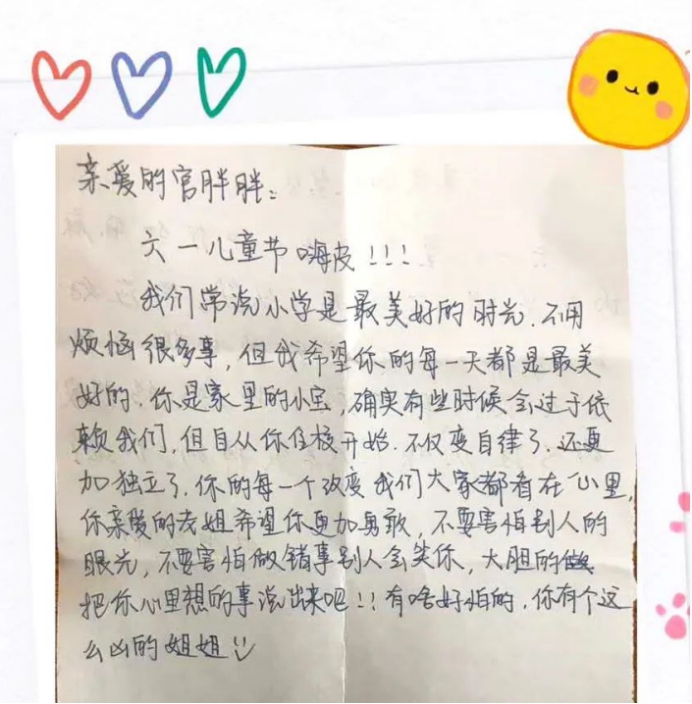 亲爱的宫胖胖：
六一儿童节嗨皮！！！
我们常说小学是最美好的时光，不用
烦恼很多事，但我希望你的每一天都是最美
好的，你是家里的小宝，确实有些时候会过于依
赖我们，但自从你住校开始，不仅变自律了，还更
加独立了，你的每一个改变我们大家都看在心里，
你亲爱的老姐希望你更加勇敢，不要害怕别人的
眼光，不要害怕做错事别人会笑你，大胆的
把你心里想的事说出来吧！！有啥好怕的，你有个这
么凶的姐姐